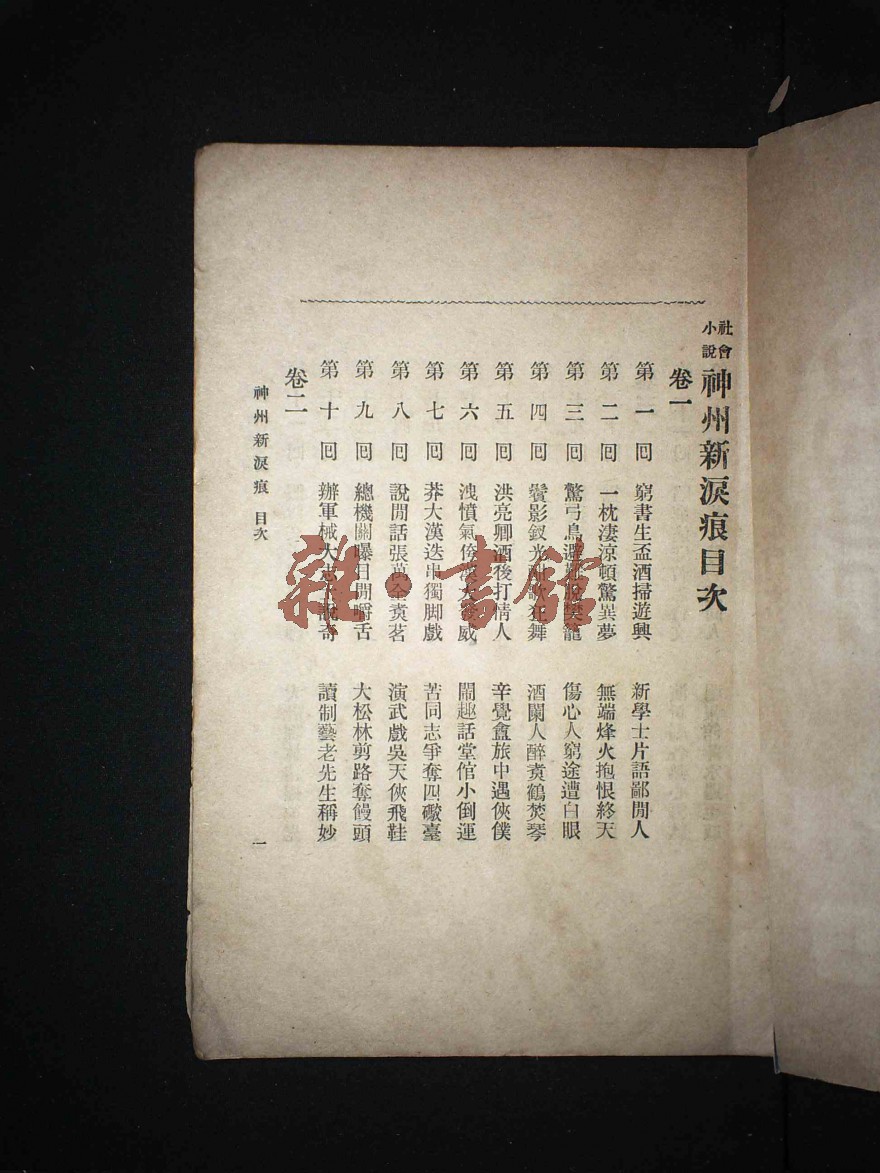 社會小說 神州新淚痕目次
卷一
第一回 窮書生盃酒掃遊興 新學士片語鄙閒人
第二回 一枕淒涼頓驚異夢 無端烽火抱恨終天
第三回 驚弓鳥避 籠 傷心人窮途遭白眼
第四回 鬢影釵光 狂舞 酒闌人醉煑鶴焚琴
第五回 洪亮卿酒後打情人 辛覺盦旅中遇俠僕
第六回 洩憤氣 威 鬧趣話堂倌小倒運
第七回 莽大漢迭串獨脚戲 苦同志爭奪四礮臺
第八回 說閒話張萬全煑茗 演武戲吳天俠飛鞋
第九回 總機關曝日閒嚼舌 大松林剪路奪饅頭
第十回 辦軍械大志 奇 讀制藝老先生稱妙
卷二
神州新淚痕 目次
一
雜·書館